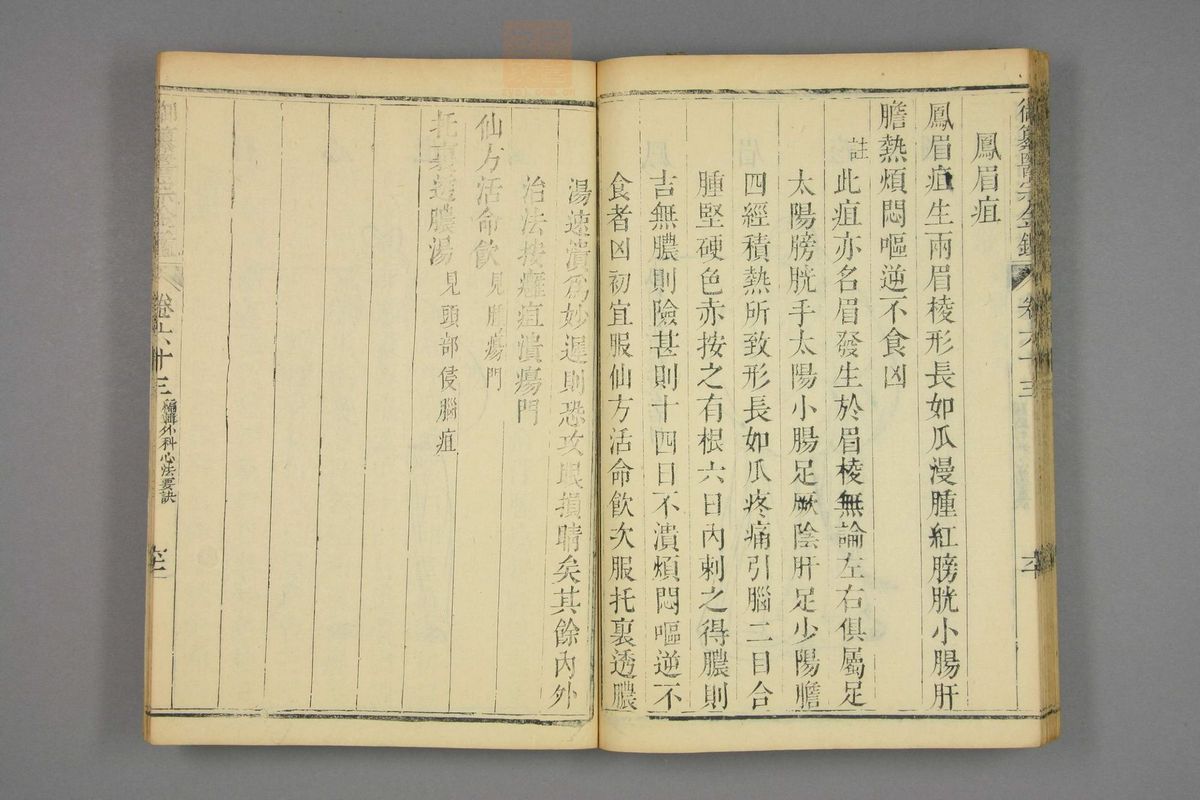 御纂醫宗金鑑
卷六十三
鳳眉疽
鳳眉疽生兩眉棱形長如瓜漫腫紅膀胱小腸肝
膽熱煩悶嘔逆不食凶
註此疽亦名眉發生於眉棱無論左右俱屬足
太陽膀胱手太陽小腸足厥陰肝足少陽膽
四經積熱所致形長如瓜疼痛引腦二目合
腫堅硬色赤按之有根六日內刺之得膿則
吉無膿則險甚則十四日不潰煩悶嘔逆不
食者凶初宜服仙方活命飲次服托裏透膿
湯速潰為妙遲則恐攻眼損睛矣其餘內外
治法按癰疽潰瘍門
仙方活命飲見腫瘍門
托裏透膿湯見頭部侵腦疽
御纂醫宗金鑑
卷六十三
編輯外科心法要訣